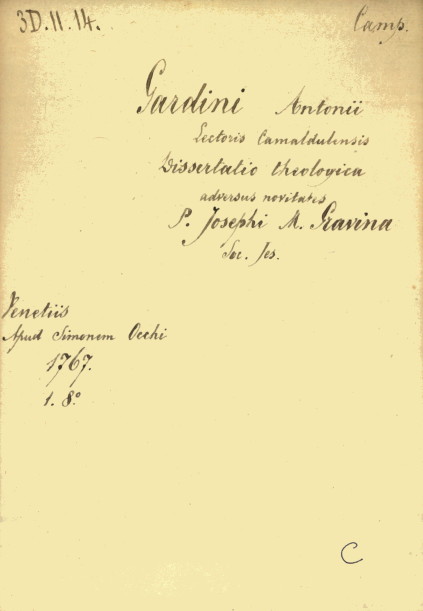 3D. II. 14. Camp.
Gardini Antonii
Lectoris Camaldulensis
Dissertatio theologica
adversus novitates
P. Josephi M. Gravina
Soc. Jes.
Venetiis
Apud Simonem Occhi
1767.
1. 8.º
C